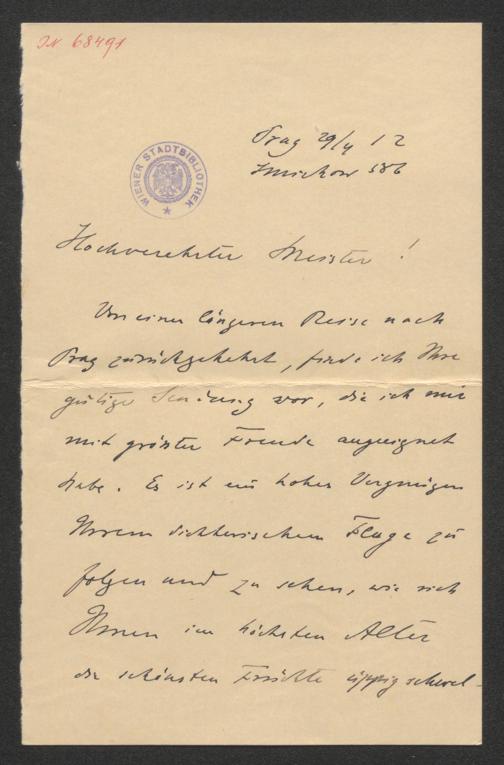 IN 68491
WIENER STADTBIBLIOTHEK
Prag 29/4 12
Smichow 586
Hochverehrter Meister!
Von einer längeren Reise nach
Prag zurückgekehrt, finde ich Ihre
gütige Sendung vor, die ich mir
mit größter Freude angeeignet
habe. Es ist ein hohes Vergnügen
Ihrem dichterischem Fluge zu
folgen und zu sehen, wie sich
Ihnen im höchsten Alter
die schönsten Früchte üppig schwel-